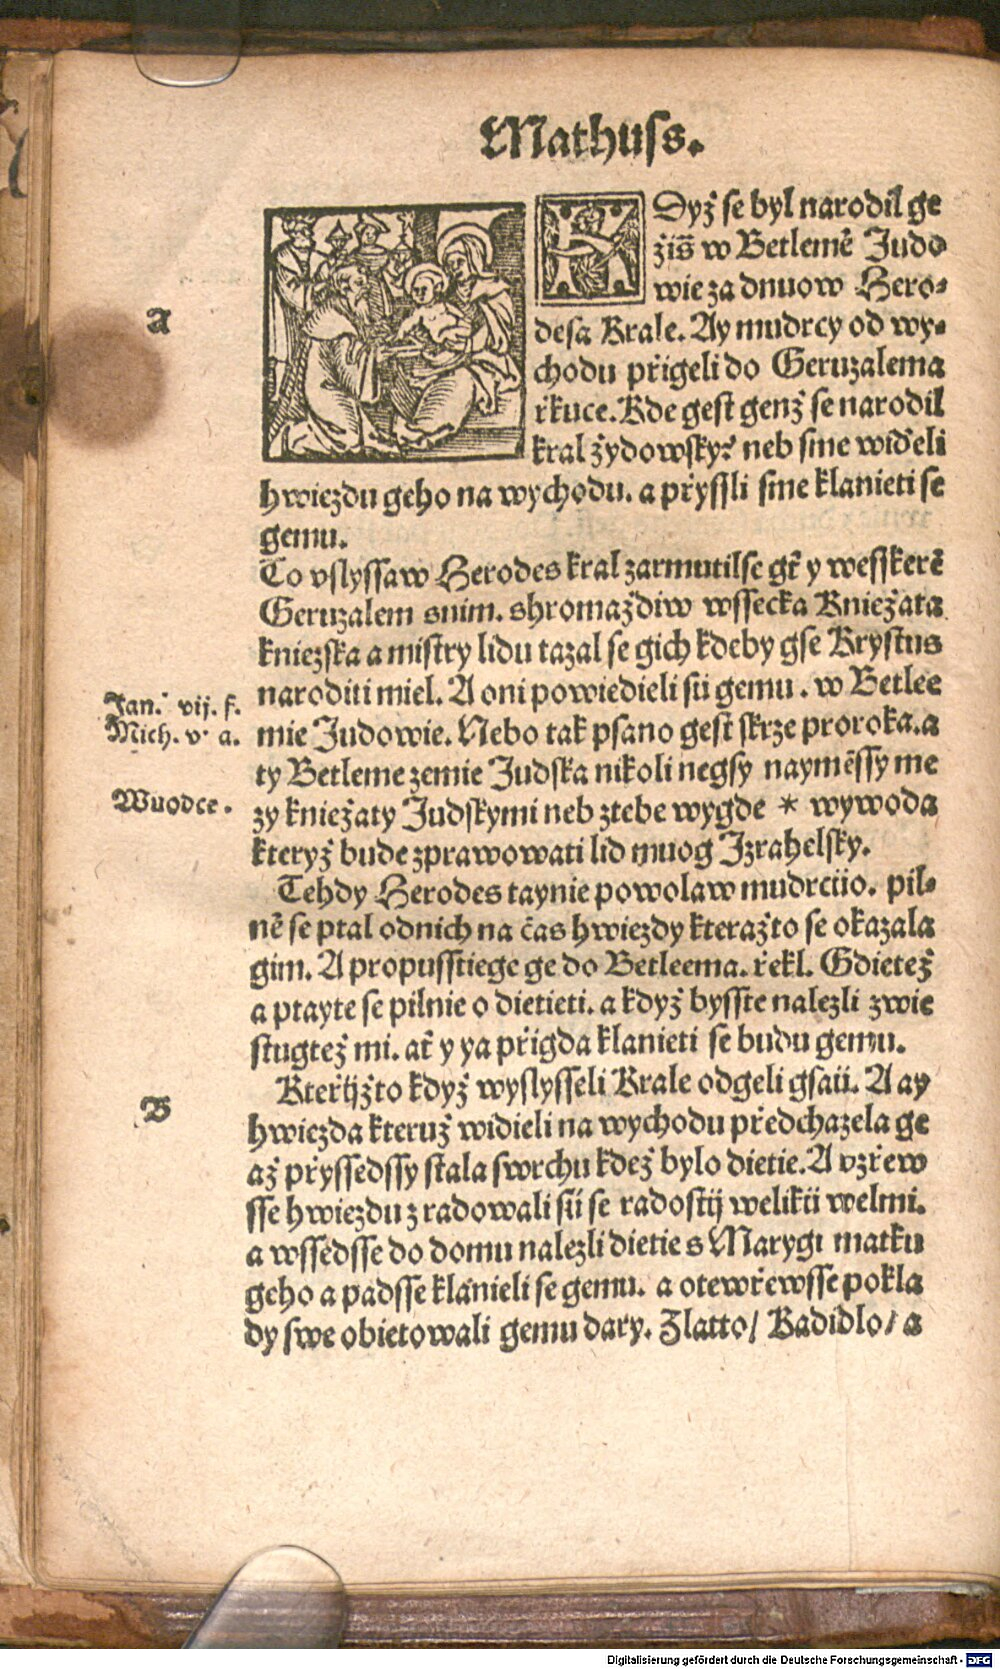 Mathuss.
KDyž se byl narodil ge
žiss w Betlemē Judo
wie za dnuow Hero-
desa Krale. Ay mudrcy od wy-
chodu přigeli do Geruzalema
řkuce. Kde gest genž se narodil
kral židowsky? neb sme wideli
hwiezdu geho na wychodu. a přyssli sme klanieti se
gemu.
To vslyssaw Herodes kral zarmutilse gt̃ y wesskerē
Geruzalem snim. shromaždiw wssecka Kniežata
kniezska a mistry lidu tazal se gich kdeby gse Krystus
naroditi miel. A oni powiedieli sú gemu. w Betlee
mie Judowie. Nebo tak psano gest skrze proroka. a
ty Betleme zemie Judska nikoli negsy naymēssy me
zy kniežaty Judskymi neb ztebe wygde * wywoda
kteryž bude zprawowati lid muog Izrahelsky.
Tehdy Herodes taynie powolaw mudrciio. pil-
nē se ptal odnich na čas hwiezdy kteražto se okazala
gim. A propusstiege ge do Betleema. řekl. Gdietež
a ptayte se pilnie o dietieti. a když bysste nalezli zwie
stugtež mi. at̃ y ya přigda klanieti se budu gemu.
Kteřijžto když wyslysseli Krale odgeli gsaú. A ay
hwiezda kteruž widieli na wychodu předchazela ge
až přyssedssy stala swrchu kdež bylo dietie. A vzřew
sse hwiezdu zradowali sú se radostij welikú welmi.
a wssedsse do domu nalezli dietie s Marygi matku
geho a padsse klanieli se gemu. a otewřewsse pokla
dy swe obietowali gemu dary. Zlatto/ Kadidlo/ a
A
Jan. vij. f.
Mich. v. a.
Wuodce.
B
Digitalisierung gefördert durch die Deutsche Forschungsgemeinschaft - DFG